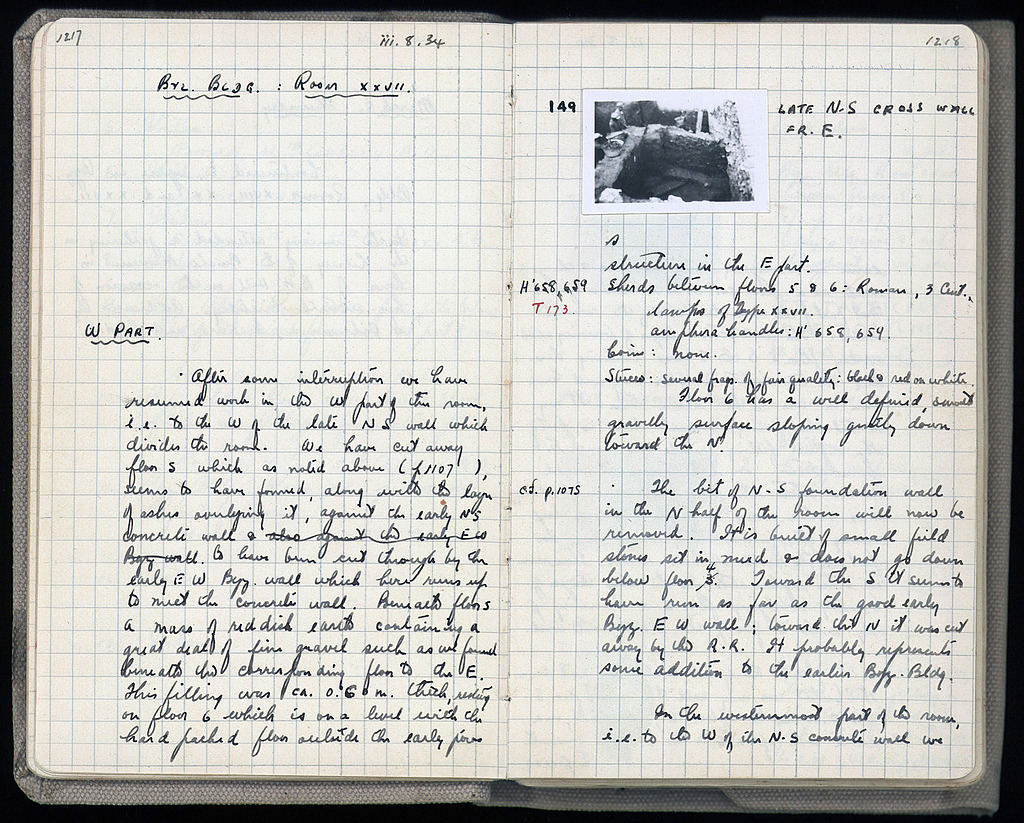 1217
iii. 8. 34
Byz. Bldg. : Room xxvii.
W Part.
After some interruption we have
resumed work in the W part of this room,
i.e. to the W of the late NS wall which
divides the room. We have cut away
floor 5 which as noted above (p. 1107),
seems to have formed, along with the layer
of ashes overlying it, against the early NS
concrete wall & also against the early EW
Byz. wall. to have been cut through by the
early E W Byz. wall which here runs up
to meet the concrete wall. Beneath floor 5
a mass of reddish earth containing a
great deal of fine gravel such as we found
beneath the corresponding floor to the E.
This filling was ca. 0.60 m. thick resting
on floor 6 which is on a level with the
hard packed floor outside the early poros
1218
149
LATE N-S CROSS WALL
FR. E.
structure in the E part.
H'658, 659
T 173
Sherds between floors 5 & 6: Roman, 3 Cent.,
lamps of type xxvii.
amphora handles: H' 658, 659.
Coins: none.
Stucco: several frags. of fair quality: black & red on white.
Floor 6 has a well defined, smooth
gravelly surface sloping gently down
toward the N.
cf. p. 1075
The bit of N-S foundation wall
in the N half of the room will now be
removed. It is built of small field
stones set in mud & does not go down
below floor 4. Toward the S it seems to
have run as far as the good early
Byz. E W wall; toward the N it was cut
away by the R.R. It probably represents
some addition to the earlier Byz. Bldg.
In the westernmost part of the room,
i.e. to the W of the N-S concrete wall we